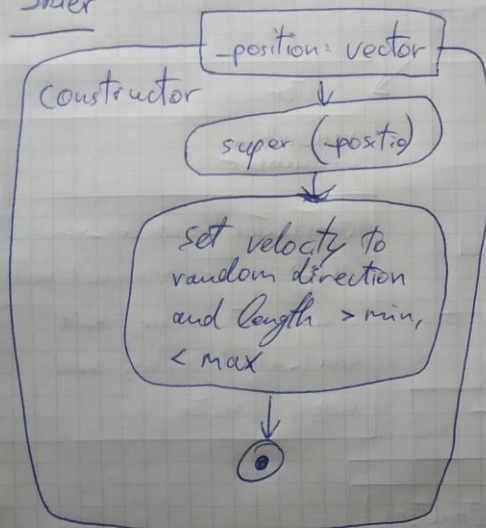 _position: vector
constructor
super (_positio)
set velocity to
random direction
and length > min,
< max